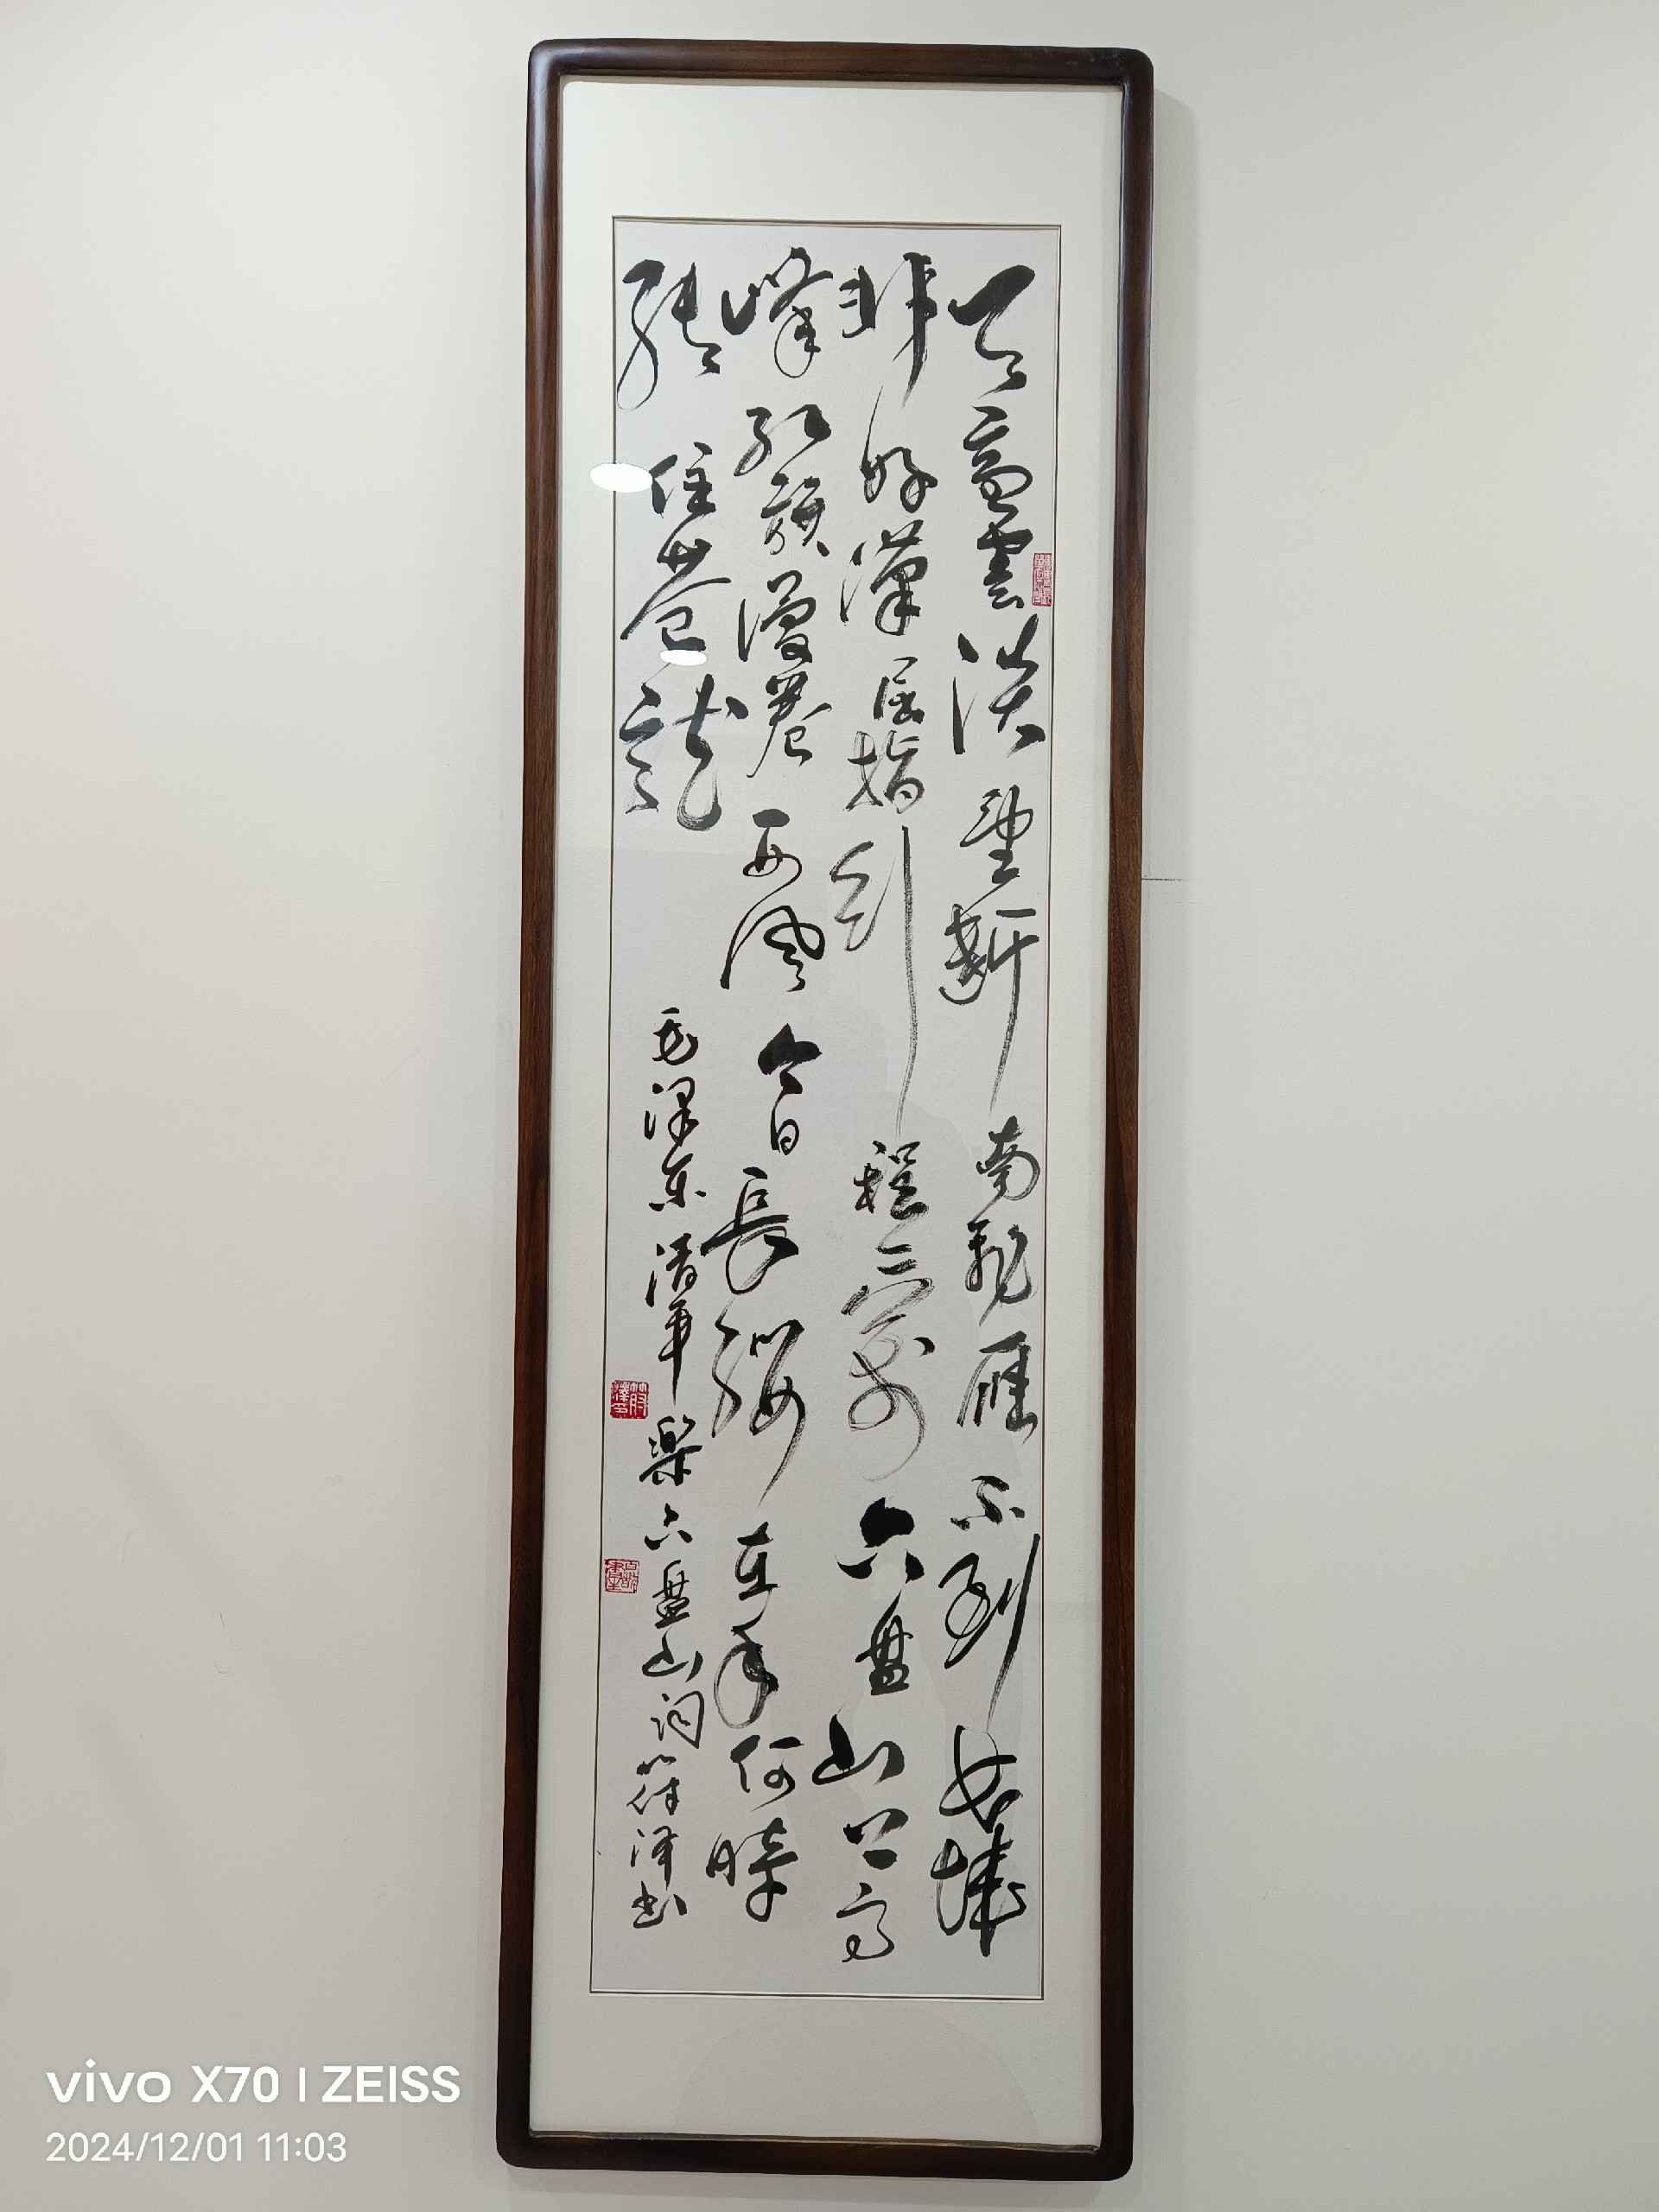 天高雲淡望斷南飛雁不到长城
非好漢屈指行程二萬六盤山上高
峰紅旗漫卷西風今日長纓在手何時
縛住蒼龍
毛泽东清平樂六盤山词符泽书
符澤印
vivo X70 | ZEISS
2024/12/01 11:03